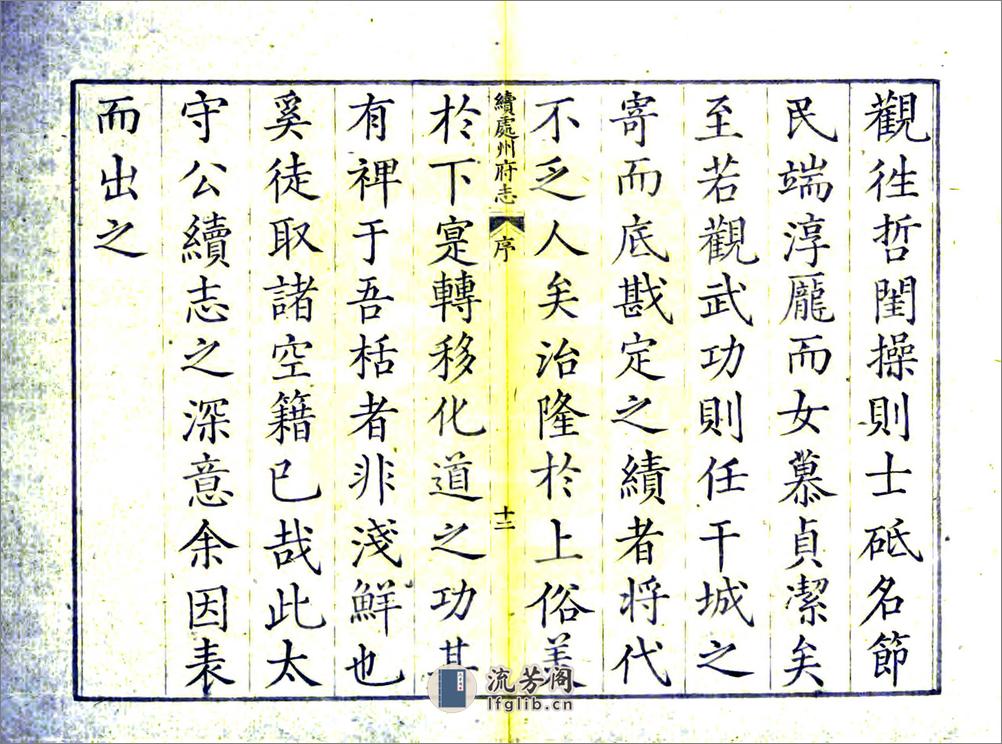 觀徃哲閨操則士砥名節
民端淳龎而女慕貞潔矣
至若觀武功則任干城之
寄而底戡定之績者將代
不乏人矣治隆於上俗美
續處州府志
序
十二
於下寔轉移化道之功其
有禆于吾栝者非淺鮮也
奚徒取諸空籍已哉此太
守公續志之深意余因表
而出之
流芳阁
lfglib.cn